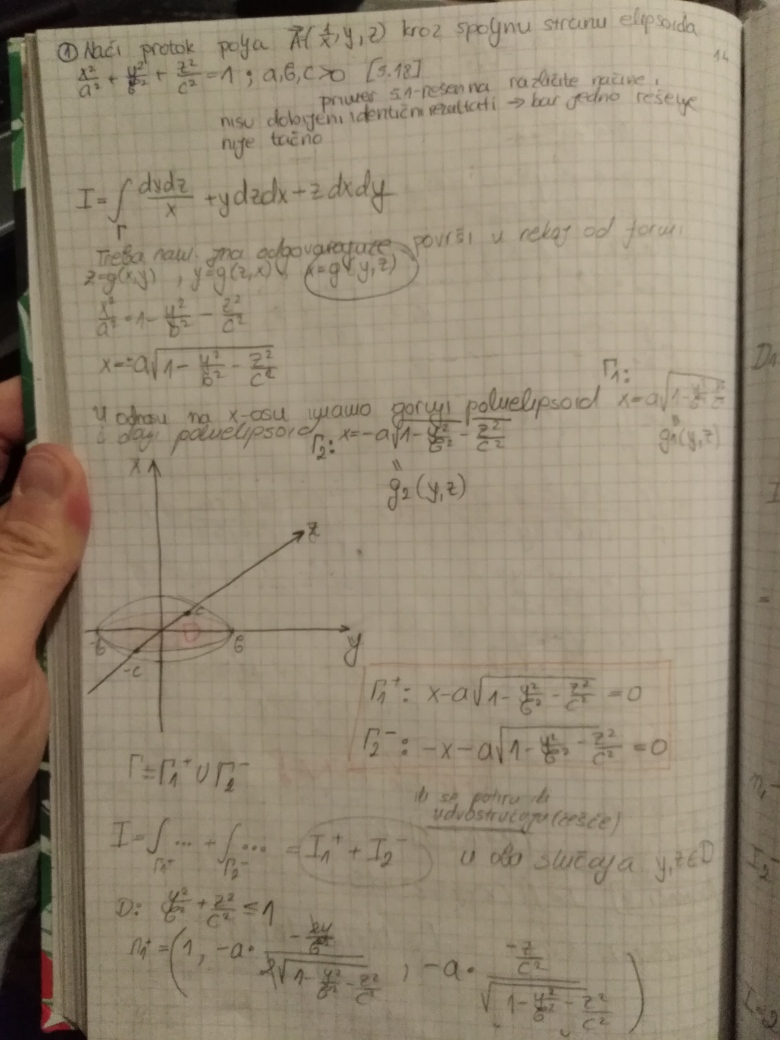 ① Naći protok polja A⃗(1/x, y, z) kroz spoljnu stranu elipsoida
x²/a² + y²/b² + z²/c² = 1 ; a,b,c>0 [5.18]
14
primer 5.1-rešen na različite načine i
nisu dobijeni identični rezultati → bar jedno rešenje
nije tačno
I = ∫_Γ dydz/x + ydzdx + zdxdy
Treba nam jna odgovarajuće površi u nekoj od formi
z=g(x,y) , y=g(z,x) , x=g(y,z)
x²/a² = 1 - y²/b² - z²/c²
x = ±a√(1 - y²/b² - z²/c²)
U odnosu na x-osu imamo gornji poluelipsoid Γ₁: x = a√(1 - y²/b² - z²/c²)
i donji poluelipsoid Γ₂: x = -a√(1 - y²/b² - z²/c²)
= g₁(y,z)
= g₂(y,z)
x
z
c
-b
D
b
y
-c
Γ₁⁺: x - a√(1 - y²/b² - z²/c²) = 0
Γ₂⁻: -x - a√(1 - y²/b² - z²/c²) = 0
Γ = Γ₁⁺ ∪ Γ₂⁻
ili se potiru ili
udvostručuju (češće)
I = ∫_Γ₁⁺ ... + ∫_Γ₂⁻ ... = I₁⁺ + I₂⁻ u oba slučaja y,z∈D
D: y²/b² + z²/c² ≤ 1
n₁⁺ = (1, -a · (-2y/b²)/(2√(1 - y²/b² - z²/c²)) , -a · (-z/c²)/√(1 - y²/b² - z²/c²))